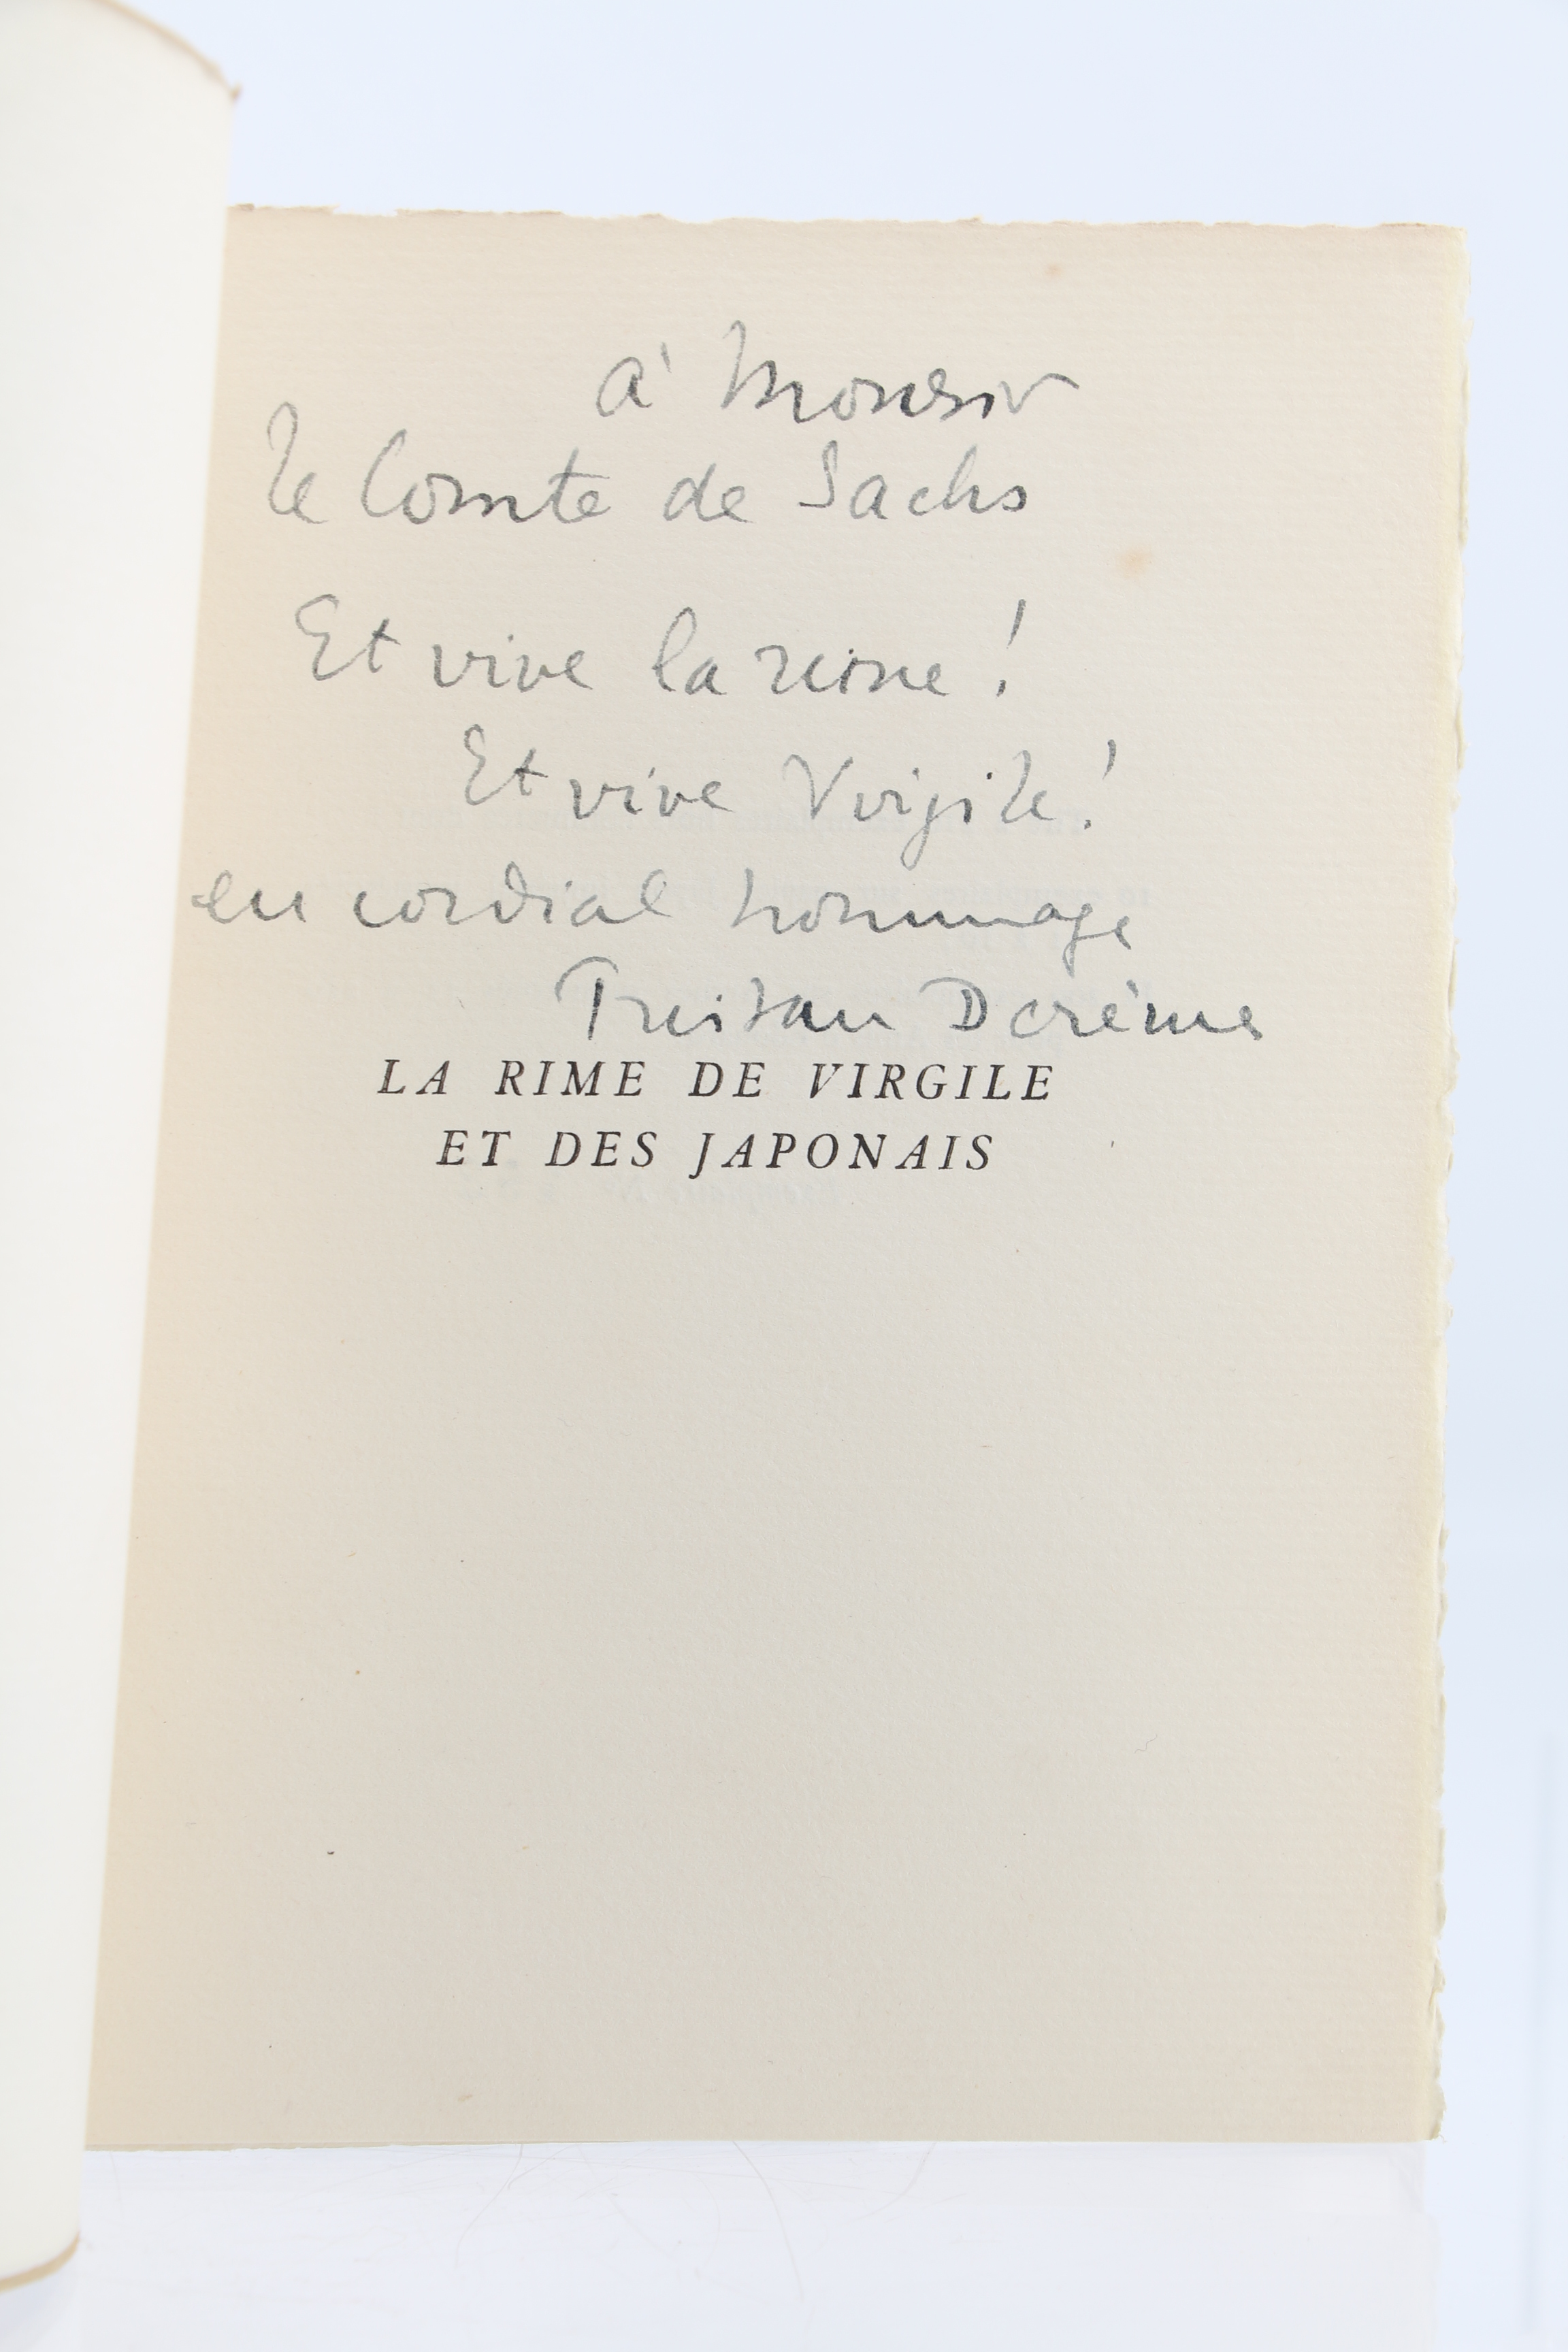 à Monsieur
le Comte de Sachs
Et vive la reine !
Et vive Virgile !
en cordial hommage
Tristan Derème
LA RIME DE VIRGILE
ET DES JAPONAIS